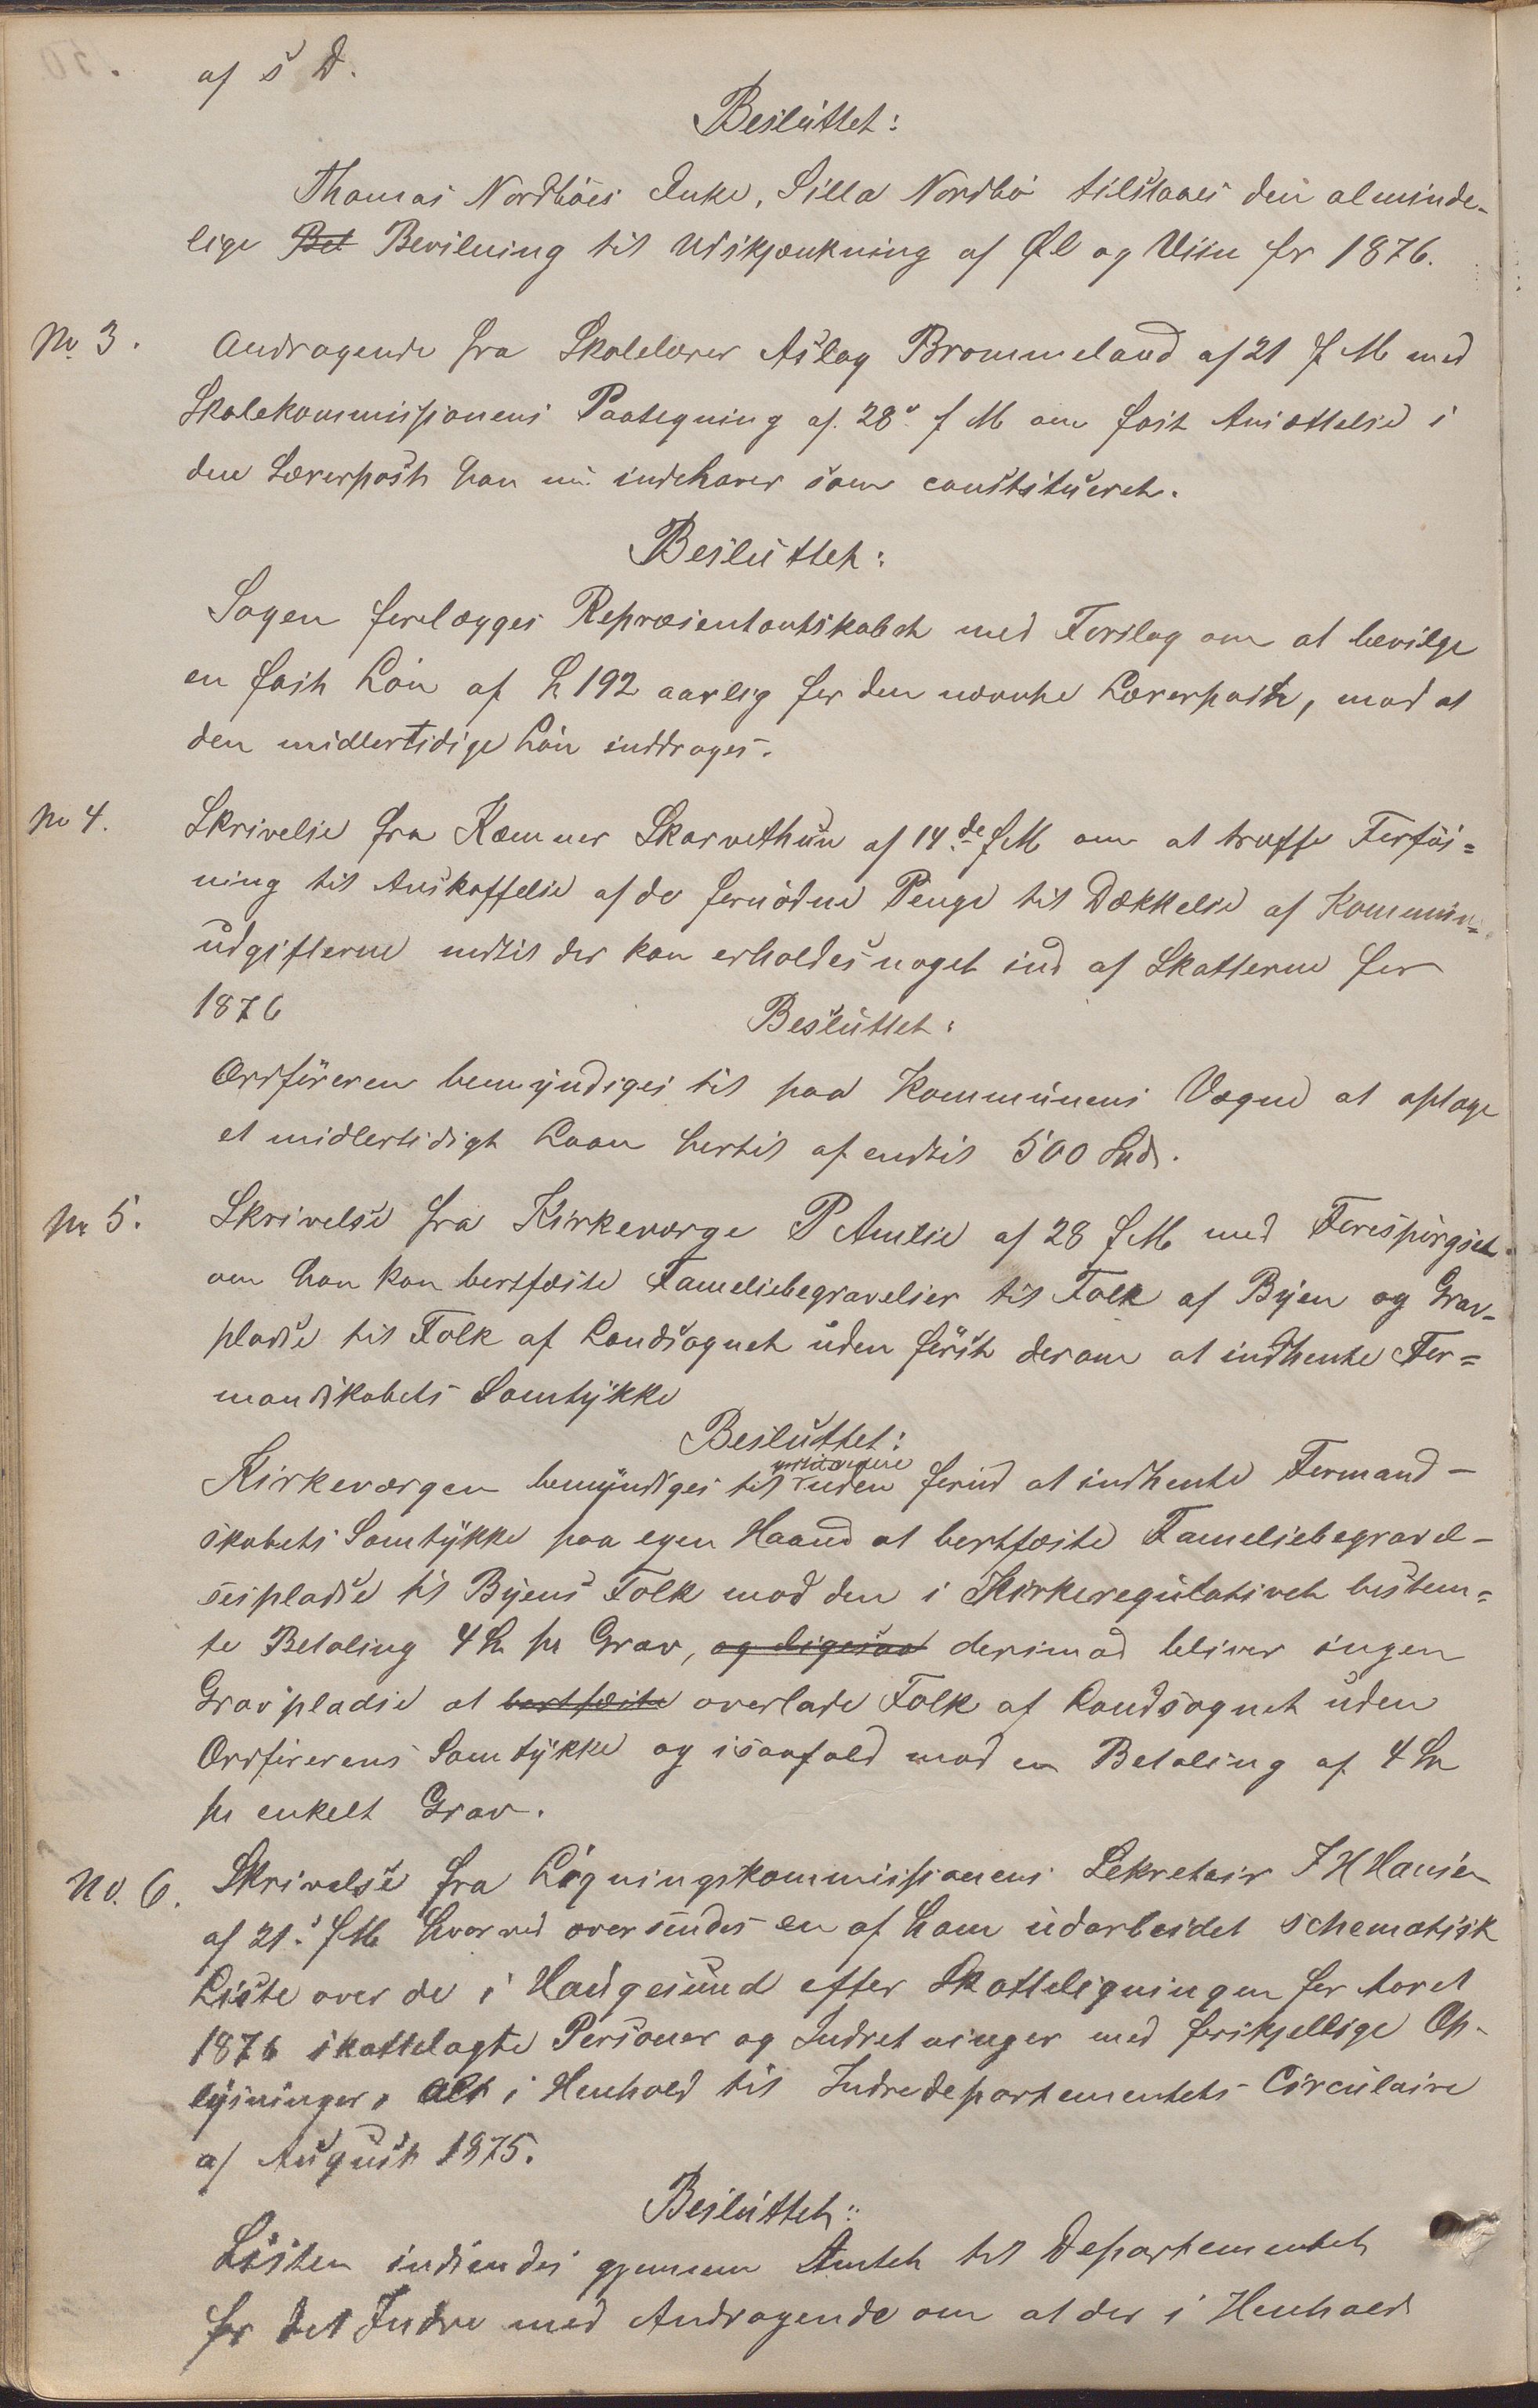 af s D.
Besluttet:
Thomas Nordböes Enke, Silla Nordbö tilstaaes den alminde-
lige Bet Bevilning til Udskjænkning af Øl og Viin for 1876.
No 3. Andragende fra Skolelærer Aslag Brommeland af 21 f M med
Skolekommissionens Paategning af 28de f M om fast Ansættelse i
den Lærerpost han nu indehaver som constitueret.
Besluttet:
Sagen forelægges Repræsentantskabet med Forslag om at bevilge
en fast Lön af 192 aarlig for den nævnte Lærerpost, mod at
den midlertidige Lön inddrages.
No 4. Skrivelse fra Kæmner Skarvethun af 14de f M om at træffe Forföi=
ning til Anskaffelse af de fornödne Penge til Dækkelse af Kommun=
udgifterne indtil der kan erholdes noget ind af Skatterne for
1876
Besluttet:
Ordföreren bemyndiges til paa Kommunens Vegne at optage
et midlertidigt Laan hertil af indtil 500 Spd.
No 5. Skrivelse fra Kirkeværge P Amlie af 28 f M med Forespörgsel
om han kan bortfæste Fameliebegravelser til Folk af Byen og Grav-
pladse til Folk af Landsognet uden först derom at indhente For=
mandskabets Samtykke
Besluttet:
Kirkeværgen bemyndiges til uden forud at indhente Formand-
skabets Samtykke paa egen Haand at bortfæste Fameliebegravel-
sespladse til Byens Folk mod den i Kirkeregulativet bestem=
te Betaling 4 pr Grav, og ligesaa derimod bliver ingen
Gravpladse at bortfæste overlade Folk af Landsognet uden
Ordförerens Samtykke og isaafald mod en Betaling af 4
pr enkelt Grav.
No. 6. Skrivelse fra Ligningskommissionens Sekretair J H Hansen
af 21. f M hvorved oversendes en af ham udarbeidet schematisk
Liste over de i Haugesund efter Skatteligningen for Aaret
1876 skattelagte Personer og Indretninger med forskjellige Op-
lysninger, alt i Henhold til Indredepartementets Circulaire
af August 1875.
Besluttet:
Listen indsendes gjennem Amtet til Departementet
for det Indre med Andragende om at der i Henhold